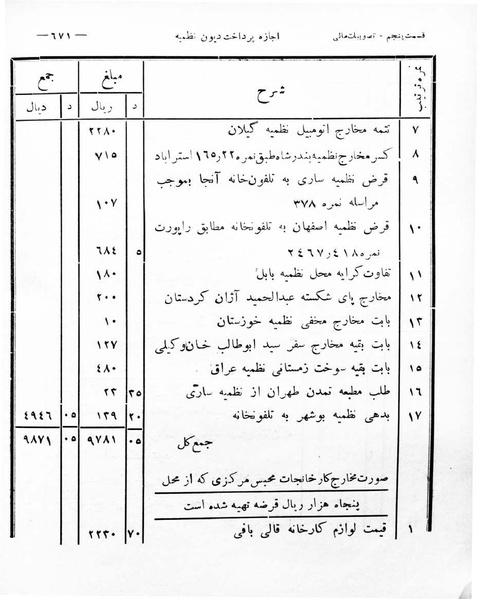 قسمت پنجم - تصویبات مالی اجازه پرداخت دیون نظمیه —۶۷۱—
نمره ترتیب شرح مبلغ جمع
د ریال د ریال
۷ تتمه مخارج اتومبیل نظمیه گیلان ۲۲۸۰
۸ کسر مخارج نظمیه بندر شاه طبق نمره ۲۲ر۱۶۵ استرآباد ۷۱۵
۹ قرض نظمیه ساری به تلفون‌خانه آنجا بموجب
مراسله نمره ۳۷۸ ۱۰۷
۱۰ قرض نظمیه اصفهان به تلفونخانه مطابق راپورت
نمره ۴۱۸ر۲۴۶۷ ۵ ۶۸۴
۱۱ تفاوت کرایه محل نظمیه بابل ۱۸۰
۱۲ مخارج پای شکسته عبدالحمید آژان کردستان ۲۰۰
۱۳ بابت مخارج مخفی نظمیه خوزستان ۱۰
۱۴ بابت بقیه مخارج سفر سید ابوطالب خان وکیلی ۱۲۷
۱۵ بابت بقیه سوخت زمستانی نظمیه عراق ۴۸۰
۱۶ طلب مطبعه تمدن طهران از نظمیه ساری ۳۵ ۲۳
۱۷ بدهی نظمیه بوشهر به تلفونخانه ۲۰ ۱۳۹ ۰۵ ۴۹۴۶
جمع کل ۰۵ ۹۷۸۱ ۰۵ ۹۸۷۱
صورت مخارج کارخانجات محبس مرکزی که از محل
پنجاه هزار ریال قرضه تهیه شده است
۱ قیمت لوازم کارخانه قالی بافی ۷۰ ۲۲۳۰